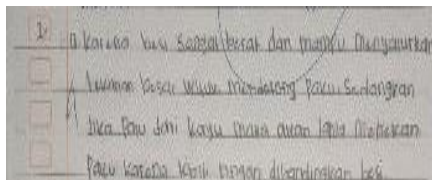 1. a. Karena besi sangat berat dan mampu menyalurkan
tekanan besar untuk mendorong paku sedangkan
jika palu dari kayu maka akan lebih
paku karena lebih ringan dibandingkan besi